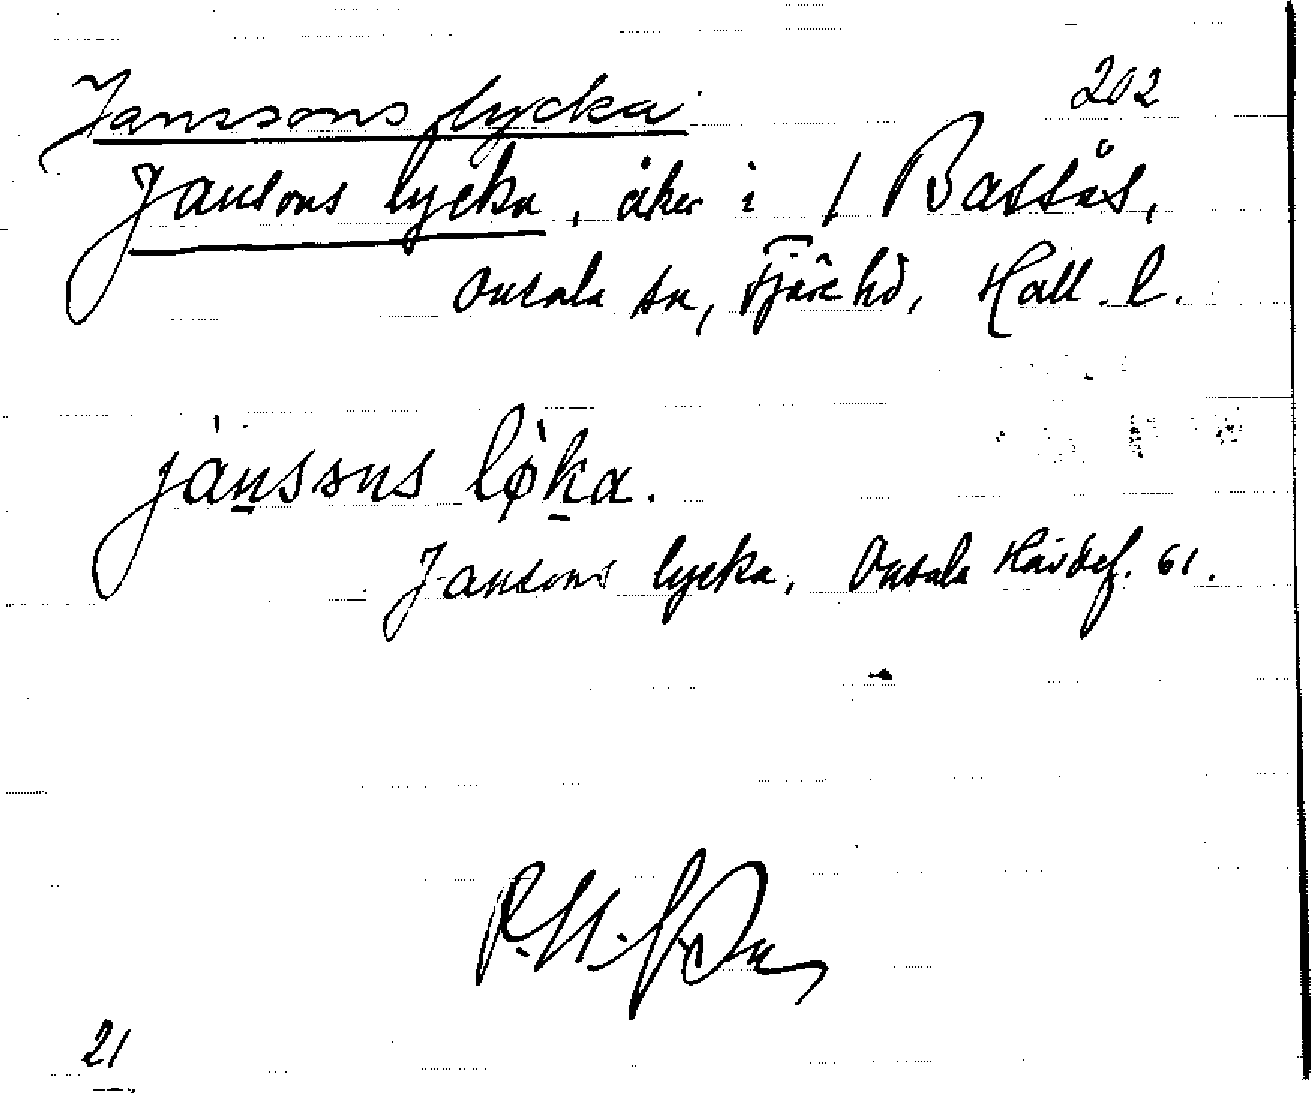 Janssons lycka 202
Jansons lycka, åker i / Bassås,
Onsala sn, Fjäre hd, Hall. l.
jànssns lø̀ka.
Jansons lycka, Onsala Hävdef. 61.
21